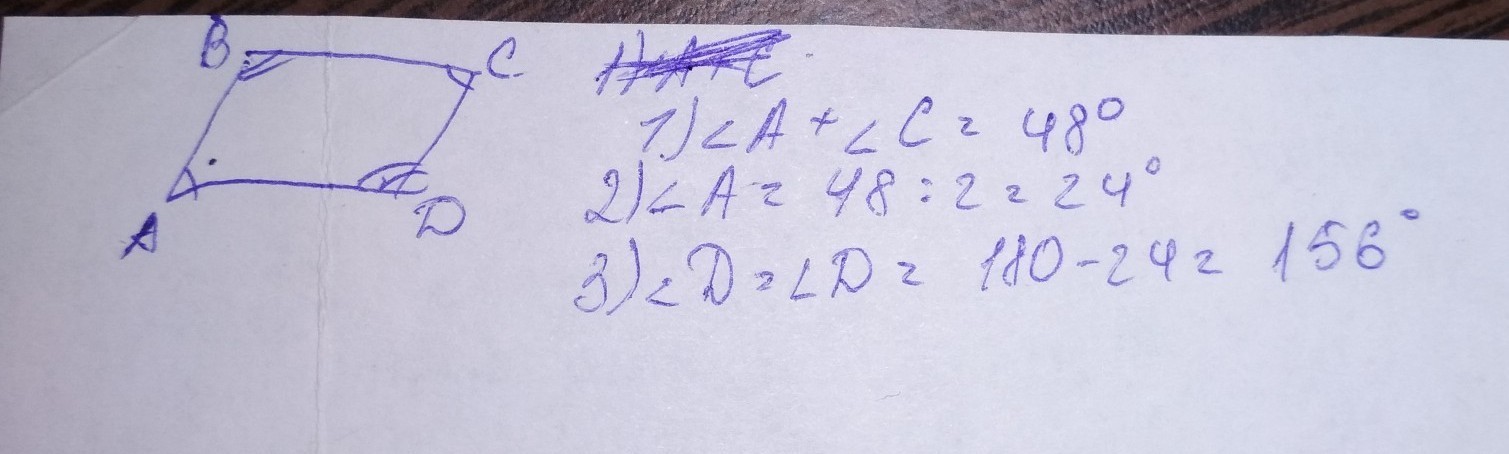 B
C
A
D
1) ∠A + ∠C = 48°
2) ∠A = 48 : 2 = 24°
3) ∠D = ∠D = 180 - 24 = 156°